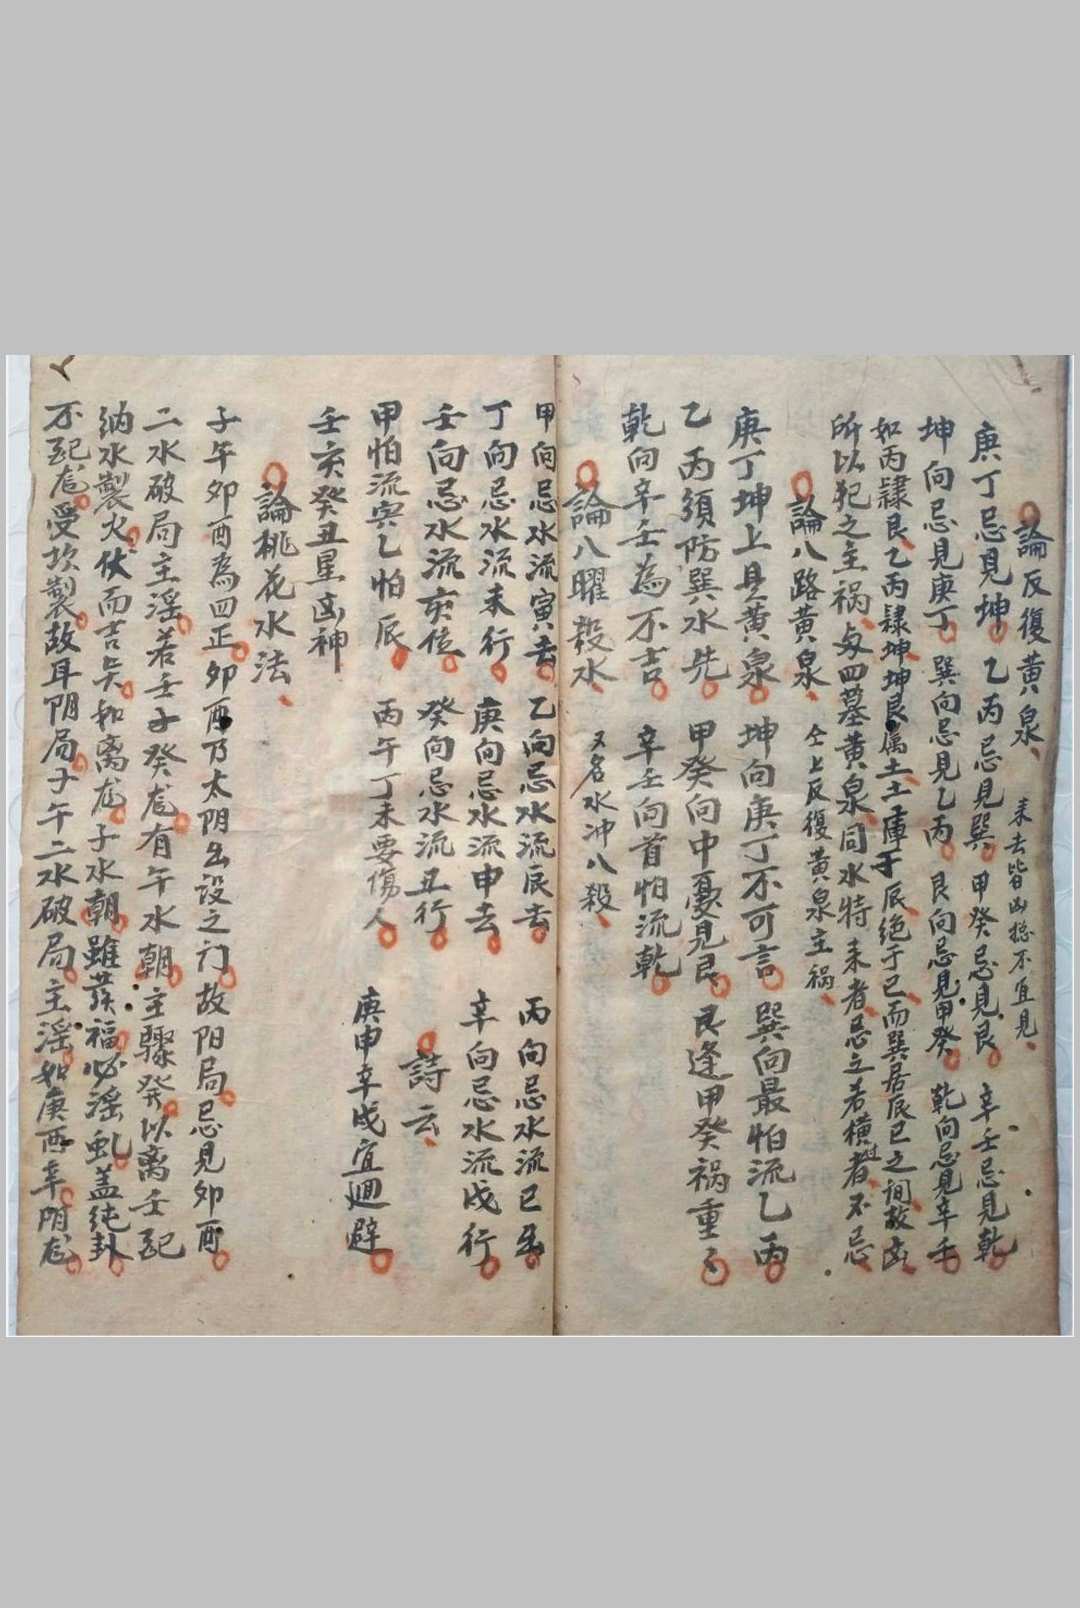 論反復黃泉 来去皆凶総不宜見
庚丁忌見坤 乙丙忌見巽 甲癸忌見艮 辛壬忌見乾
坤向忌見庚丁 巽向忌見乙丙 艮向忌見甲癸 乾向忌見辛壬
如丙隷艮乙丙隷坤坤艮属土土庫于辰绝于巳而巽居辰巳之间故凶
所以犯之主祸与四墓黄泉同水特来者忌之若横过者不忌
論八路黄泉 仝上反復黄泉主祸
庚丁坤上是黄泉 坤向庚丁不可言 巽向最怕流乙丙
乙丙須防巽水先 甲癸向中憂見艮 艮逢甲癸祸重々
乾向辛壬為不吉 辛壬向首怕流乾
論八曜殺水 又名水冲八殺
甲向忌水流寅去 乙向忌水流辰去 丙向忌水流巳出
丁向忌水流未行 庚向忌水流申去 辛向忌水流戌行
壬向忌水流亥位 癸向忌水流丑行 詩云
甲怕流寅乙怕辰 丙午丁未要傷人 庚申辛戌宜廻避
壬亥癸丑星凶神
論桃花水法
子午卯酉為四正卯酉乃太阴出没之门故阳局忌見卯酉
二水破局主淫若壬子癸龙有午水朝主驟發以离壬配
纳水製火伏而吉矣如离龙子水朝雖發福必淫乱盖纯卦
不配龙受坎製故耳阴局子午二水破局主淫如庚酉辛阴龙